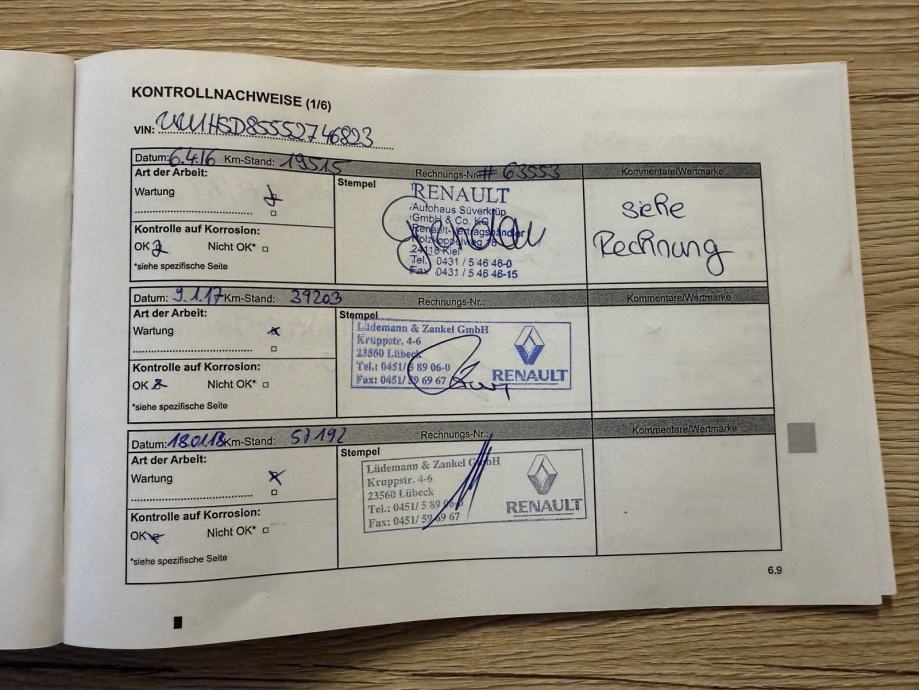 KONTROLLNACHWEISE (1/6)
VIN:
Datum: 6.4.16 Km-Stand: 19515 Rechnungs-Nr.: # 63553 Kommentare/Wertmarke
Art der Arbeit: Stempel
Wartung
RENAULT
Autohaus Süverkrüp
GmbH & Co. KG
Renault-Vertragshändler
Holzkoppelweg 18
24118 Kiel
Tel. 0431 / 5 46 46-0
Fax 0431 / 5 46 46-15
siehe
Rechnung
Kontrolle auf Korrosion:
OK Nicht OK*
*siehe spezifische Seite
Datum: 9.1.17 Km-Stand: 39203 Rechnungs-Nr.: Kommentare/Wertmarke
Art der Arbeit: Stempel
Wartung
Lüdemann & Zankel GmbH
Kruppstr. 4-6
23560 Lübeck
Tel.: 0451/ 5 89 06-0
Fax: 0451/ 59 69 67
RENAULT
Kontrolle auf Korrosion:
OK Nicht OK*
*siehe spezifische Seite
Datum: 18.01.18 Km-Stand: 57192 Rechnungs-Nr.: Kommentare/Wertmarke
Art der Arbeit: Stempel
Wartung
Lüdemann & Zankel GmbH
Kruppstr. 4-6
23560 Lübeck
Tel.: 0451/ 5 89 06-0
Fax: 0451/ 59 69 67
RENAULT
Kontrolle auf Korrosion:
OK Nicht OK*
*siehe spezifische Seite
6.9